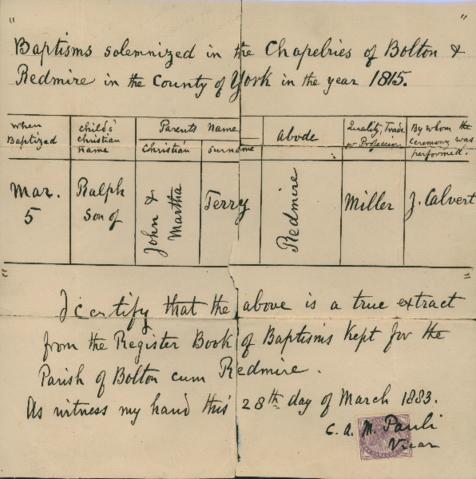 "Baptisms solemnized in the Chapelries of Bolton &
Redmire in the County of York in the year 1815."
when Baptized | child's Christian Name | Parents Name Christian | surname | Abode | Quality, Trade or Profession | By whom the Ceremony was performed.
Mar. 5 | Ralph Son of | John & Martha | Terry | Redmire | Miller | J. Calvert
" "
I certify that the above is a true extract
from the Register Book of Baptisms kept for the
Parish of Bolton cum Redmire.
As witness my hand this 28th day of March 1883.
C. A. M. Pauli
Vicar